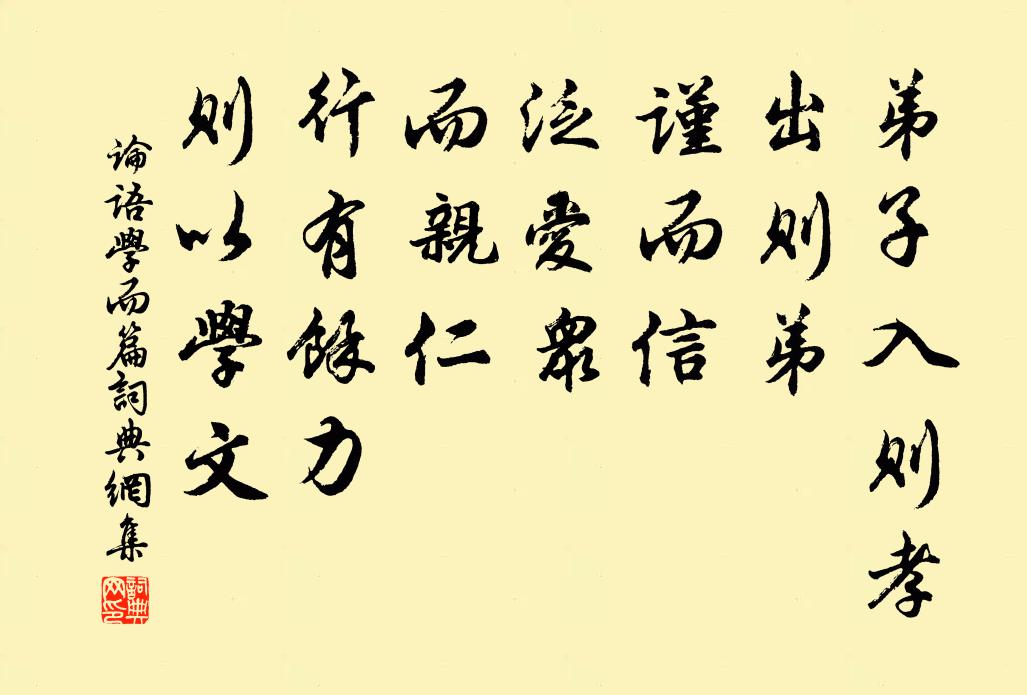 弟子入則孝
出則弟
謹而信
泛愛眾
而親仁
行有餘力
則以學文
論語學而篇詞典網集
詞典
网印